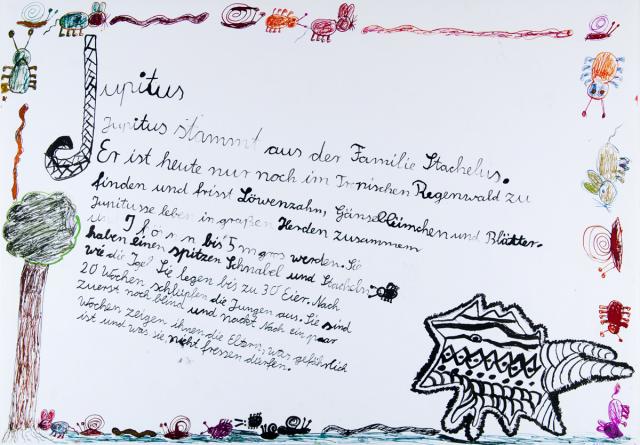 Jupitus
Jupitus stammt aus der Familie Stachelus.
Er ist heute nur noch im Tropischen Regenwald zu
finden und frisst Löwenzahn, Gänseblümchen und Blätter.
Jupitusse leben in großen Herden zusammen
bis 5 m gros werden. Sie
haben einen spitzen Schnabel und Stacheln
wie die Igel. Sie legen bis zu 30 Eier. Nach
20 Wochen schlüpfen die Jungen aus. Sie sind
zuerst noch blind und nackt. Nach ein paar
Wochen zeigen ihnen die Eltern, was gefährlich
ist und was sie nicht fressen dürfen.